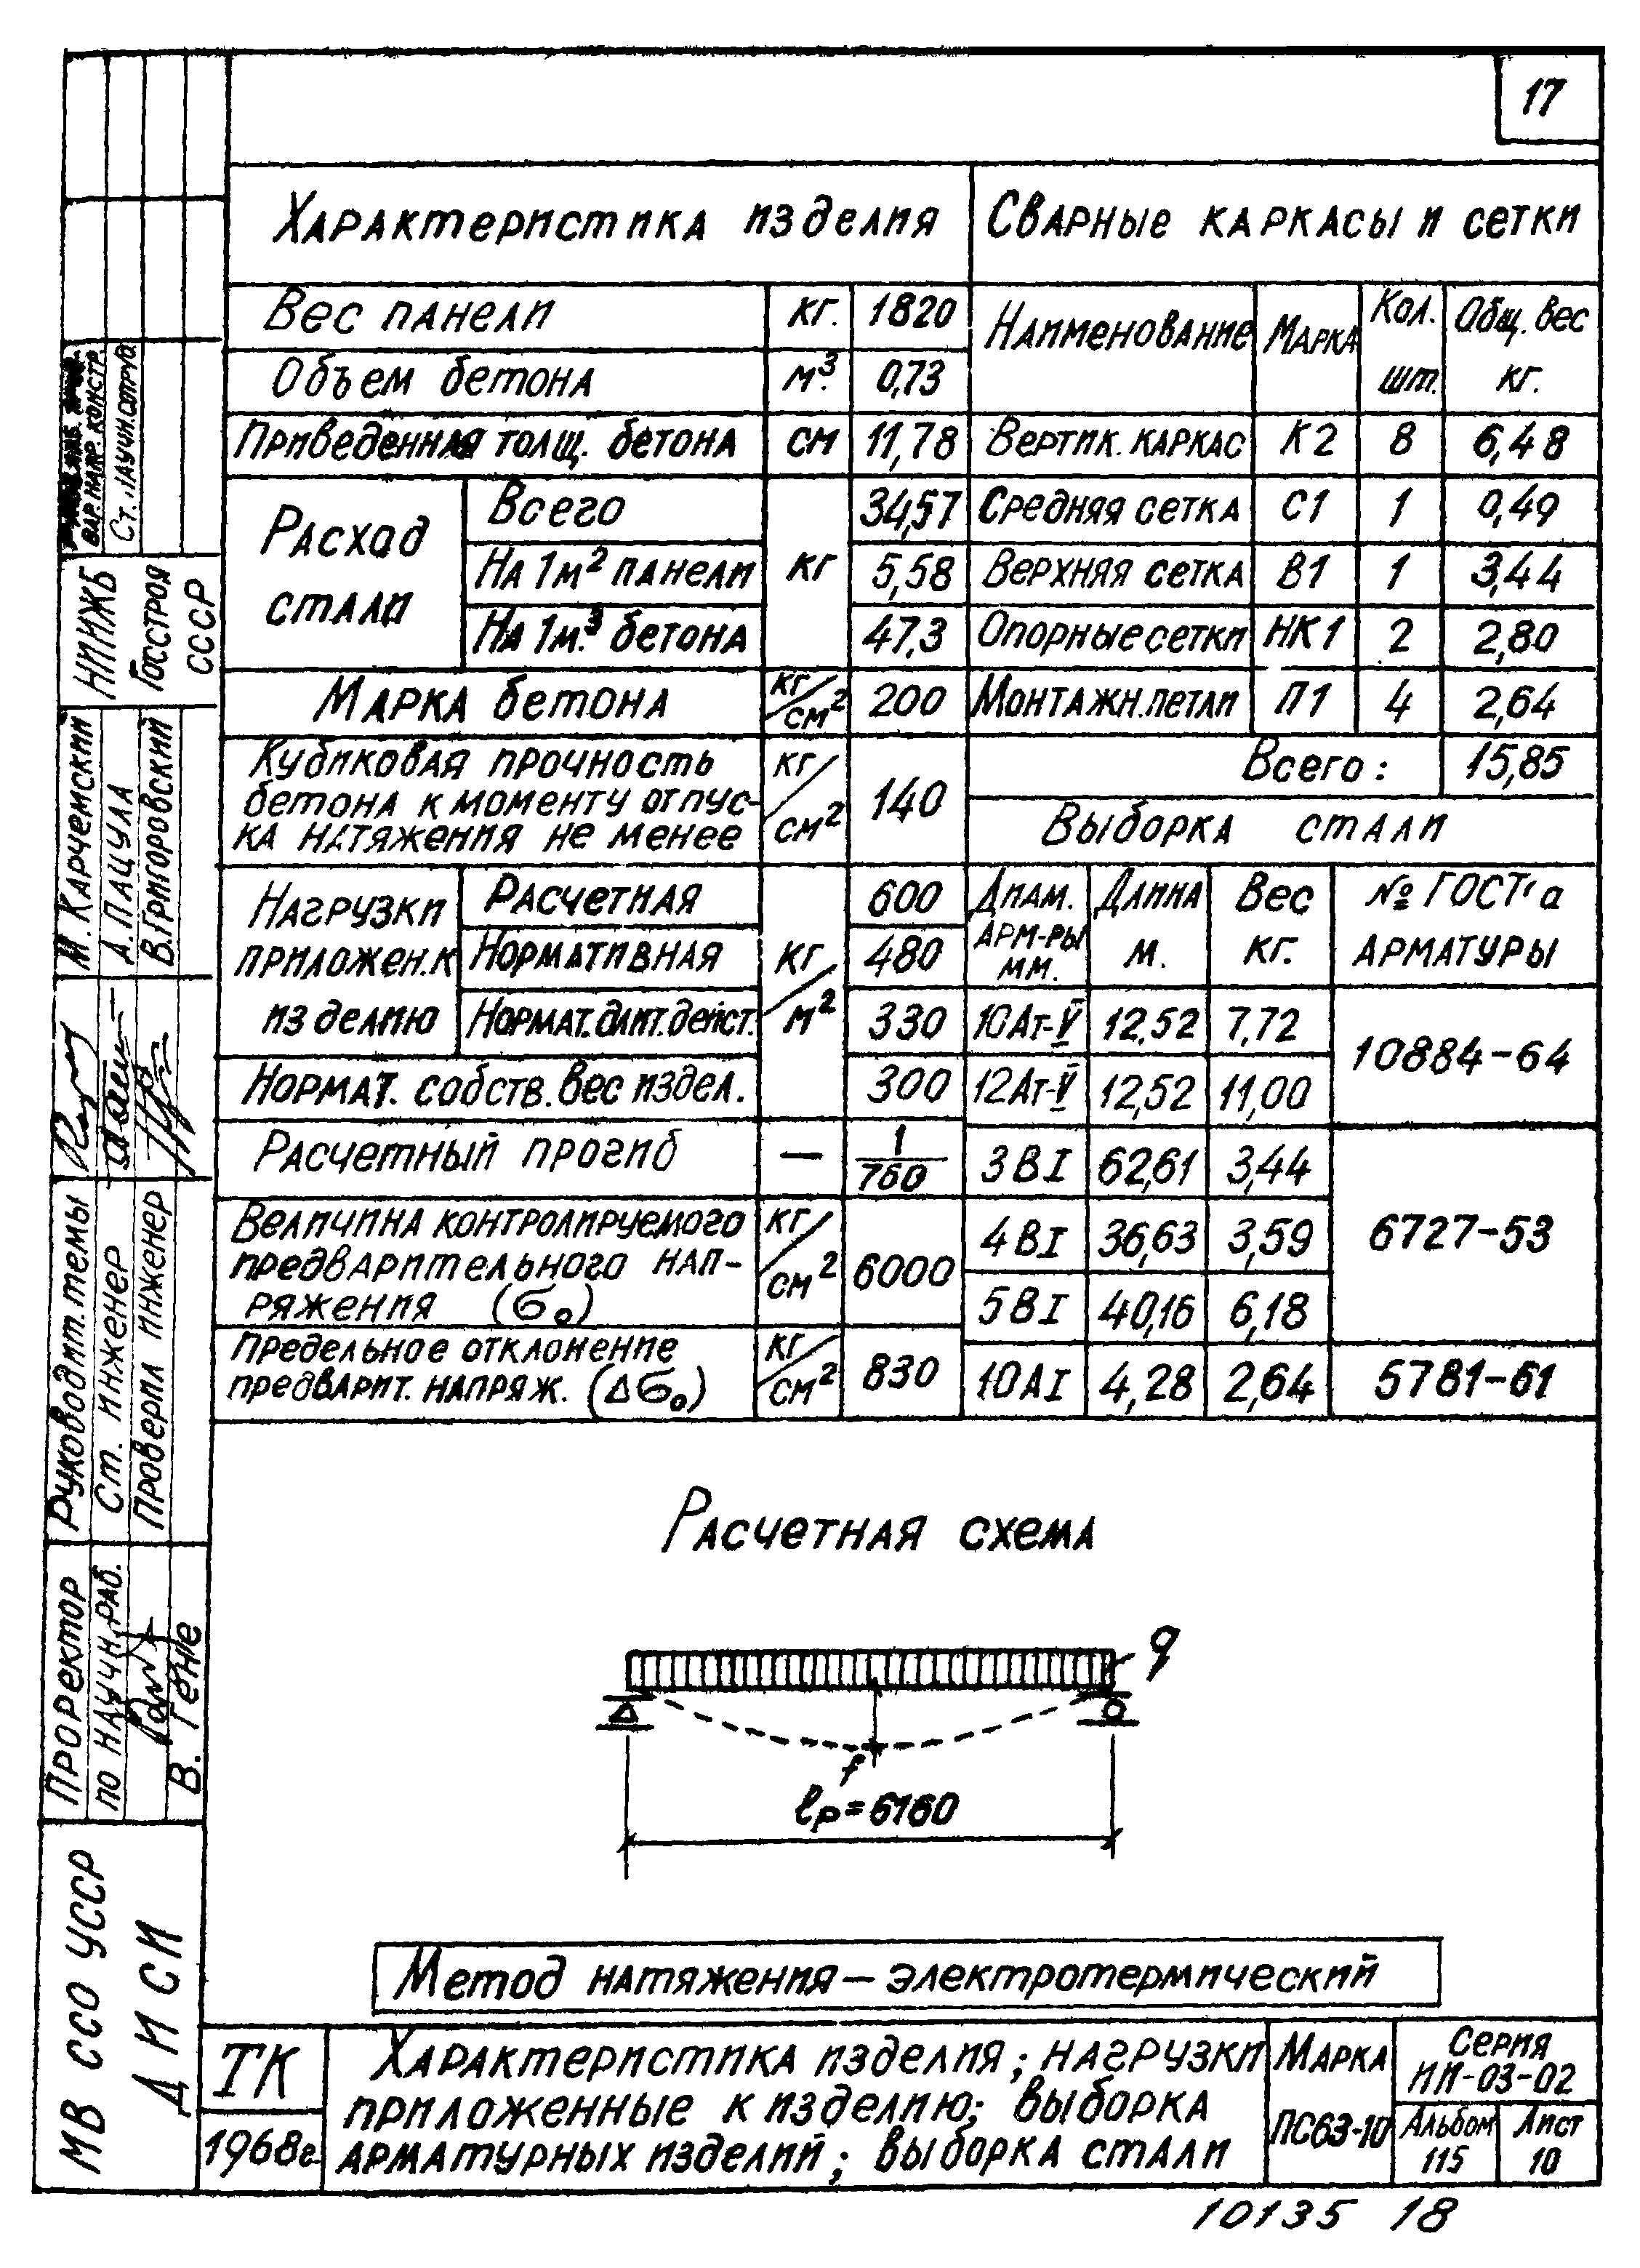 17
Характеристика изделия
Сварные каркасы и сетки
Вес панели кг. 1820
Объем бетона м³. 0,73
Приведенная толщ. бетона см 11,78
Расход стали кг
Всего 34,57
На 1м² панели 5,58
На 1м.³ бетона 47,3
Марка бетона кг/см² 200
Кубиковая прочность
бетона к моменту отпус-
ка натяжения не менее кг/см² 140
Нагрузки
приложен. к
изделию кг/м²
Расчетная 600
Нормативная 480
Нормат. длит. дейст. 330
Нормат. собств. вес издел. 300
Расчетный прогиб — 1/760
Величина контролируемого
предварительного нап-
ряжения (σ₀) кг/см² 6000
Предельное отклонение
предварит. напряж. (Δσ₀) кг/см² 830
Наименование Марка Кол. шт. Общ. вес кг.
Вертик. каркас К2 8 6,48
Средняя сетка С1 1 0,49
Верхняя сетка В1 1 3,44
Опорные сетки НК1 2 2,80
Монтажн. петли П1 4 2,64
Всего: 15,85
Выборка стали
Диам. арм-ры мм. Длина м. Вес кг. № ГОСТ'а арматуры
10Ат-V 12,52 7,72 10884-64
12Ат-V 12,52 11,00
3ВI 62,61 3,44 6727-53
4ВI 36,63 3,59
5ВI 40,16 6,18
10АI 4,28 2,64 5781-61
Расчетная схема
q
f
lр=6160
Метод натяжения — электротермический
ТК
1968г.
Характеристика изделия; нагрузки
приложенные к изделию; выборка
арматурных изделий; выборка стали
Марка
ПС63-10
Серия
ИИ-03-02
Альбом
115
Лист
10
10135 18
МВ ССО УССР
ДИСИ
Проректор
по научн. раб.
В. Гене
Руководит. темы
Ст. инженер
Проверил инженер
М. Карчемский
А. Пацула
В. Григоровский
НИИЖБ
Госстроя
СССР